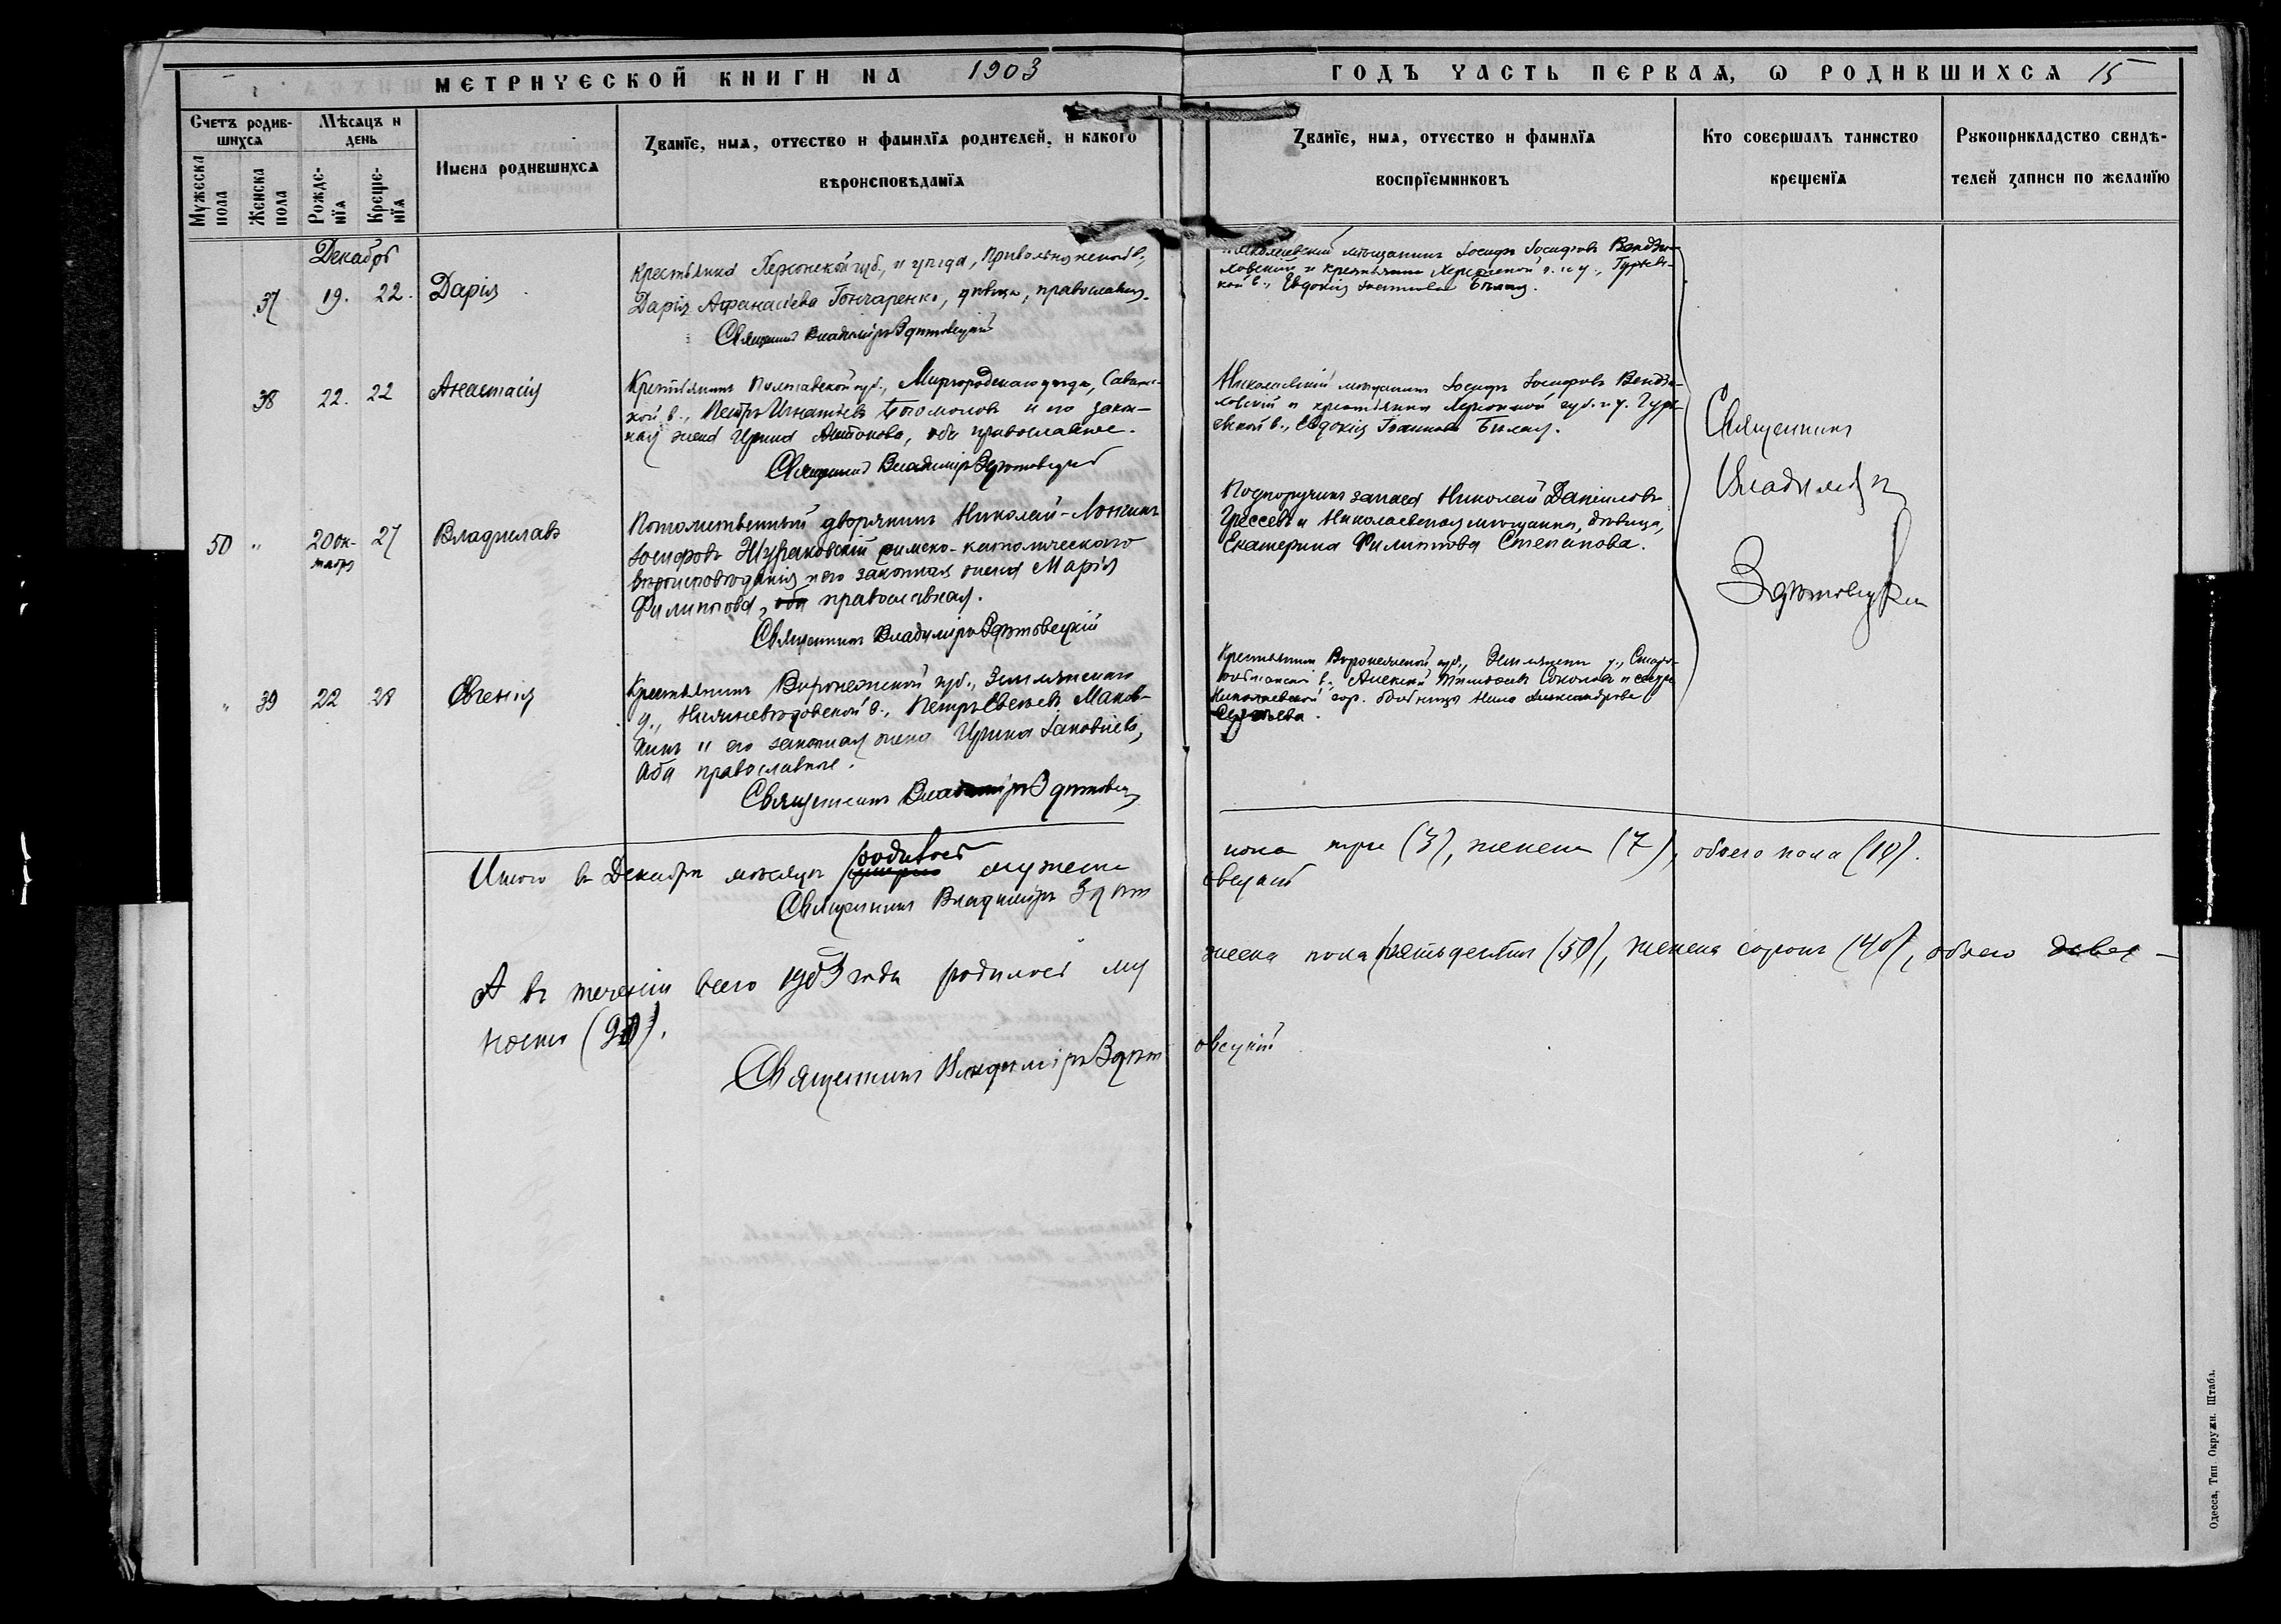 МЕТРИЧЕСКОЙ КНИГИ НА 1903
ГОДЪ ЧАСТЬ ПЕРВАЯ, Ѡ РОДИВШИХСЯ 15
Счетъ родив-
шихся
Мѣсяцъ и
день
Мужеска
пола
Женска
пола
Рожде-
нія
Креще-
нія
Имена родившихся
Званіе, имя, отчество и фамилія родителей, и какого
вѣроисповѣданія
Званіе, имя, отчество и фамилія
воспріемниковъ
Кто совершалъ таинство
крещенія
Рукоприкладство свидѣ-
телей записи по желанію
Декабрь
37 19. 22. Дарія
Крестьянка Херсонской губ., и уѣзда, Привольнянской в.,
Дарія Афанасіева Гончаренко, дѣвица, православная.
Священникъ Владиміръ Здѣтовецкій
Николаевскій мѣщанинъ Іосифъ Іосифовъ Вендзи-
ловскій и крестьянка Херсонской г. и у., Гурьев-
кой в., Евдокія Бѣлая.
38 22. 22 Анастасія
Крестьянинъ Полтавской губ., Миргородскаго уѣзда, Савинс-
кой в., Петръ Игнатьевъ Богомоловъ и его закон-
ная жена Ирина Антонова, оба православные.
Священникъ Владиміръ Здѣтовецкій
Николаевскій мѣщанинъ Іосифъ Іосифовъ Вендзи-
ловскій и крестьянка Херсонской губ. и у. Гурь-
евской в., Евдокія Іоаннова Бѣлая.
50 " 20 ок-
тября 27 Владиславъ
Потомственный дворянинъ Николай-Лонгинъ
Іосифовъ Жураковскій римско-католическаго
вѣроисповѣданія и его законная жена Марія
Филиппова, оба православная.
Священникъ Владиміръ Здѣтовецкій
Подпоручикъ запаса Николай Даніиловъ
Грессевъ и Николаевская мѣщанка, дѣвица,
Екатерина Филиппова Степанова.
" 39 22 28 Евгенія
Крестьянинъ Воронежской губ., Землянскаго
у., Нижневѣдовской в., Петръ Маков-
кинъ и его законная жена Ирина Іаковлева,
оба православные.
Священникъ Владиміръ Здѣтовецк
Крестьянинъ Воронежской губ., Землянск у.,
в., Алексѣй Соколовъ и
Николаевской гор. больницы Нина Александрова
Сергѣева.
Священникъ
Владиміръ
Здѣтовецкій
Итого въ Декабрѣ мѣсяцѣ родилось умерло мужеска
пола три (3), женска (7), обоего пола (10).
Священникъ Владиміръ Здѣт
овецкій
А въ теченіи всего 1903 года родилось му
жеска пола пятьдесятъ (50), женска сорокъ (40), обоего девя-
носто (90).
Священникъ Владиміръ Здѣт
овецкій
Одесса, Тип. Окружн. Штаба.